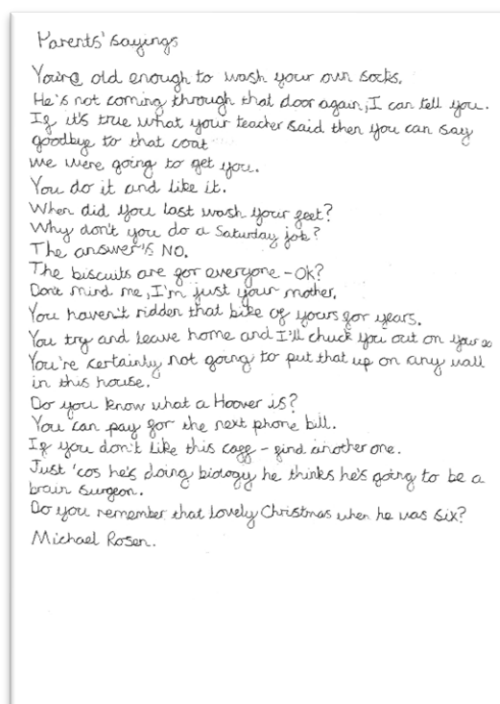 Parents' Sayings
You're old enough to wash your own socks.
He's not coming through that door again, I can tell you.
If it's true what your teacher said then you can say
goodbye to that coat
we were going to get you.
You do it and like it.
When did you last wash your feet?
Why don't you do a Saturday job?
The answer's NO.
The biscuits are for everyone - Ok?
Don't mind me, I'm just your mother.
You haven't ridden that bike of yours for years.
You try and leave home and I'll chuck you out on your
You're certainly not going to put that up on any wall
in this house.
Do you know what a Hoover is?
You can pay for the next phone bill.
If you don't like this caff - find another one.
Just 'cos he's doing biology he thinks he's going to be a
brain surgeon.
Do you remember that lovely Christmas when he was six?
Michael Rosen.